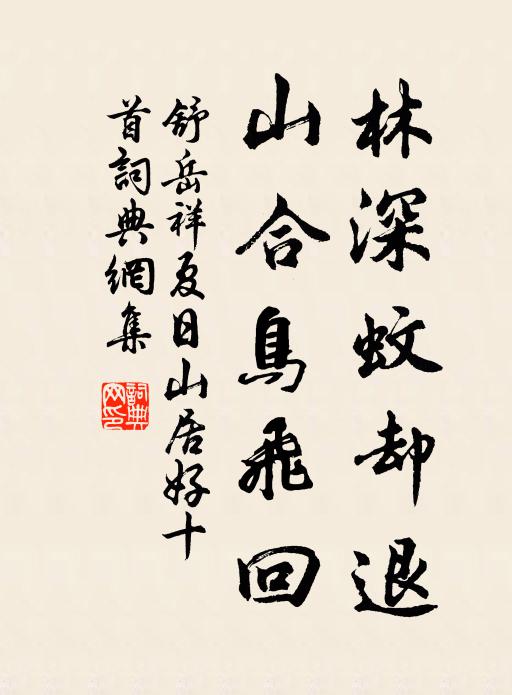 林深蚊却退
山合鳥飛回
舒岳祥夏日山居好十
首詞典網集
詞典網印